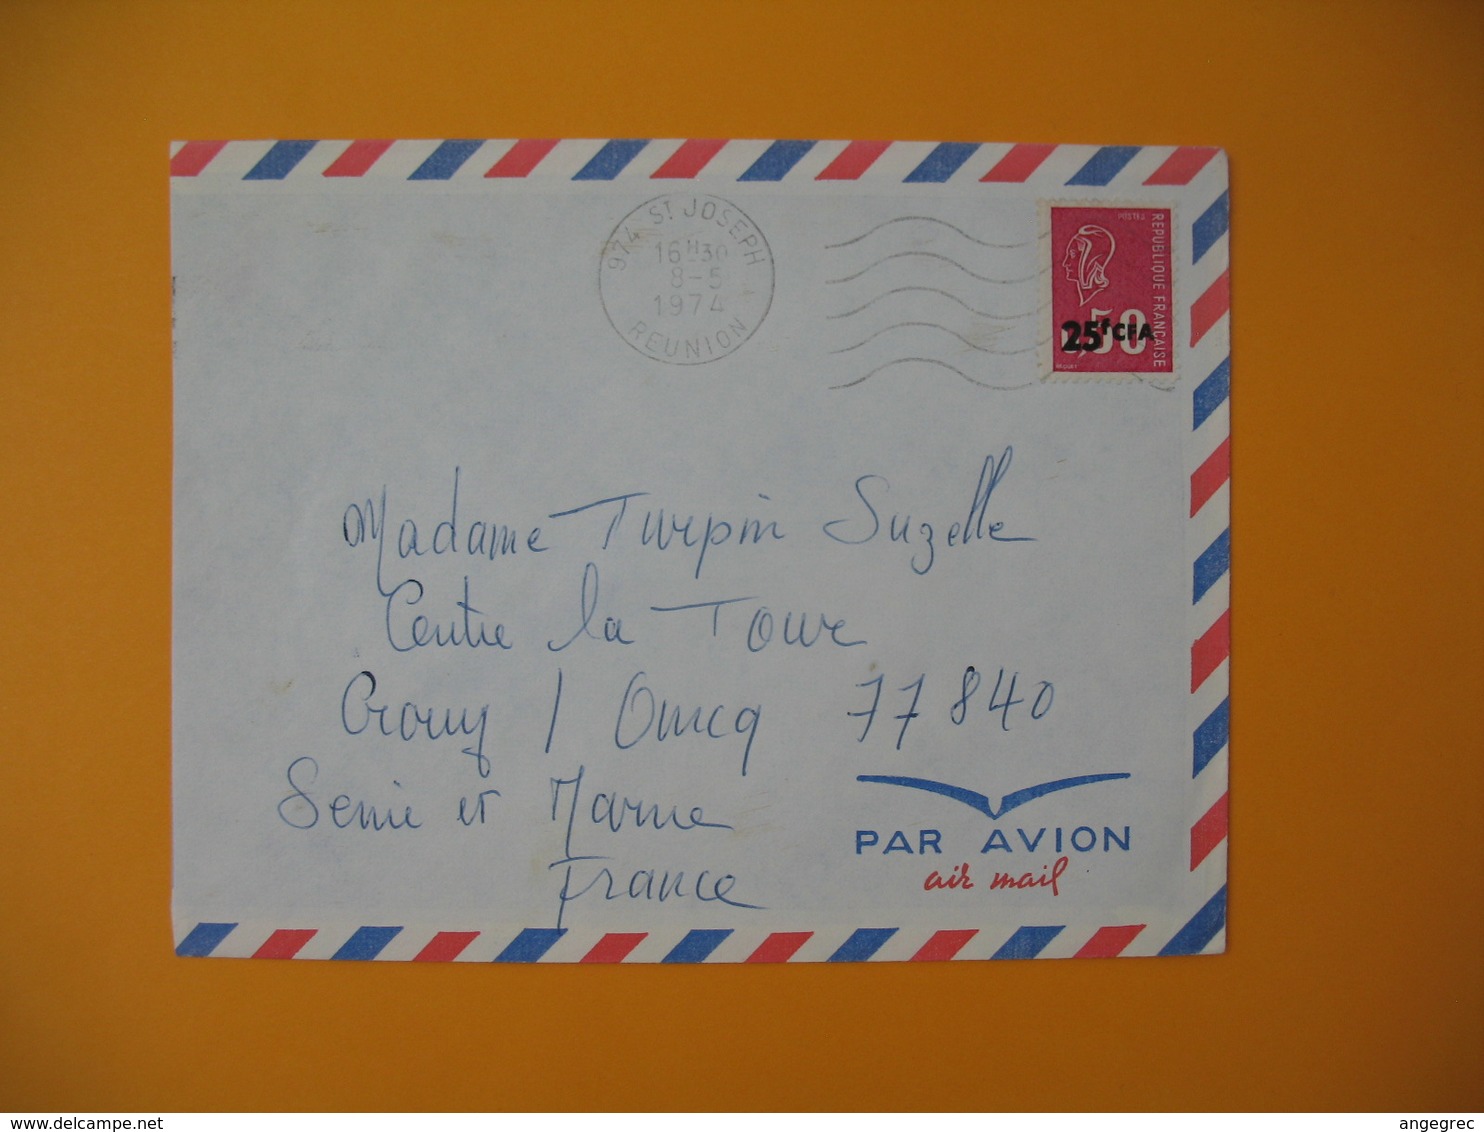 974 ST JOSEPH
16H30
8-5
1974
REUNION
POSTES
REPUBLIQUE FRANÇAISE
0,50
25f CFA
Madame Turpin Suzelle
Centre la Tour
Crouy / Ourcq 77840
Seine et Marne
France
PAR AVION
air mail
delcampe.net
angegrec